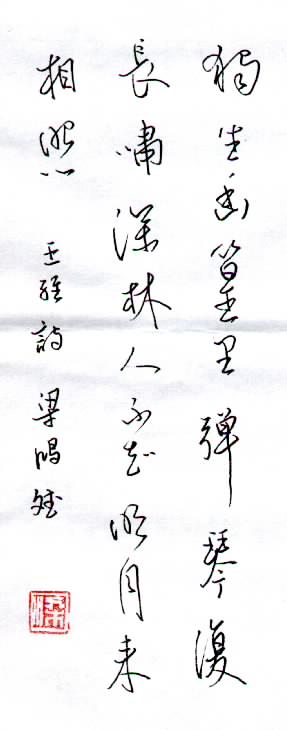 獨坐幽篁里彈琴復
長嘯深林人不知明月来
相照 王維詩 梁鴻斌
梁